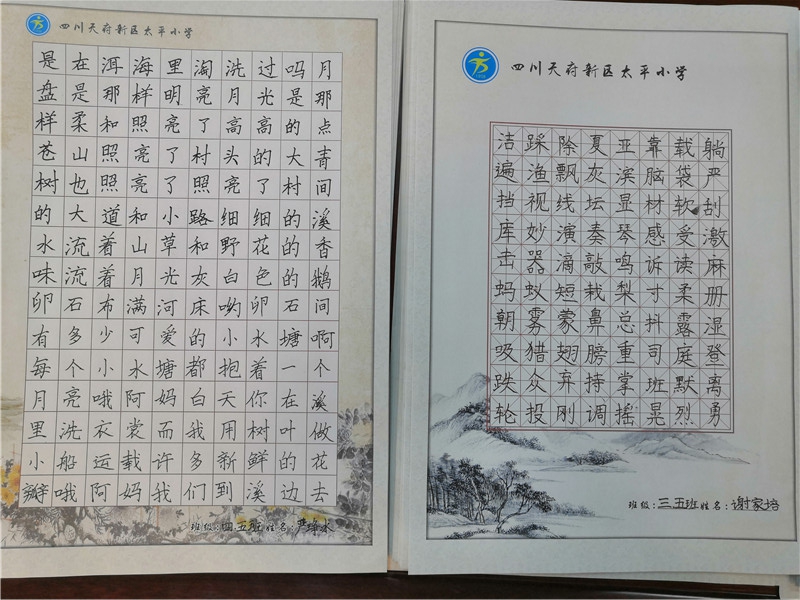 四川天府新区太平小学
是在洱海里淘洗过吗月
盘是那样明亮月光是那
样柔和照亮了高高的点
苍山照亮了村头的大青
树也照亮了照亮了村间
的大道和小路细细的溪
水流着山草和野花的香
味流着月光灰白色的鹅
卵石布满河床哟卵石间
有多少可爱的小水塘啊
每个小水塘都抱着一个
月亮哦阿妈白天你在溪
里洗衣裳而我用树叶做
小船运载许多新鲜的花
瓣哦阿妈我们到溪边去
班级:四.五班姓名:
四川天府新区太平小学
洁踩除夏亚靠载躺
遍渔飘灰滨脑袋严
挡视线坛显材软刮
库妙演奏琴感受激
击器滴敲鸣诉读麻
蚂蚁短栽梨寸柔册
朝雾蒙鼻总抖露湿
吸猎翅膀重司庭登
跌众弃持掌班默离
轮投刚调摇晃烈勇
班级:三.五班姓名:谢家培